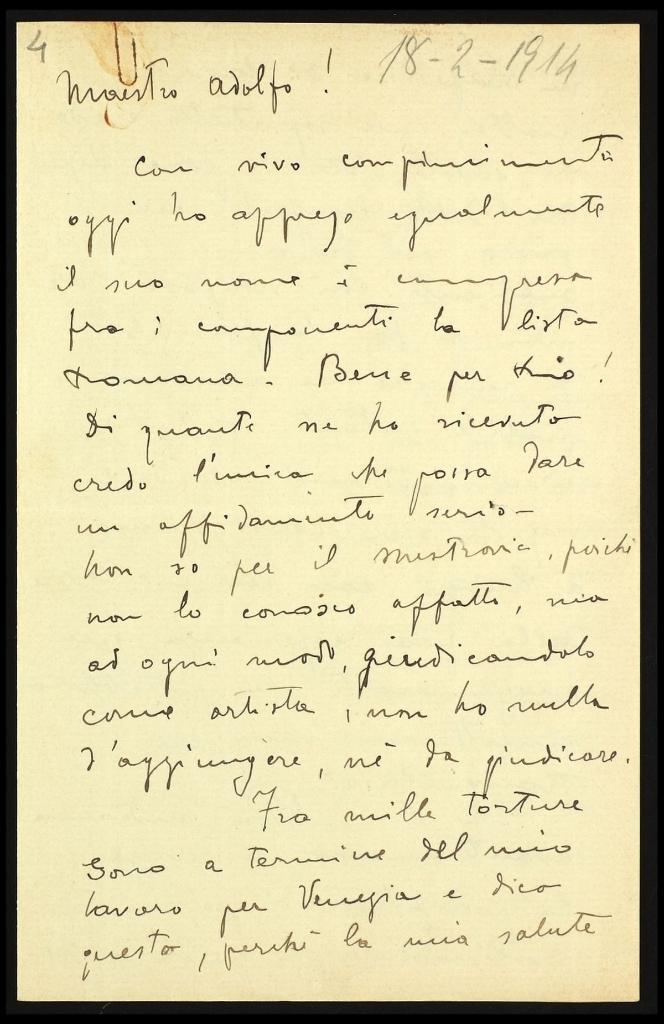 4
18-2-1914
Maestro Adolfo!
Con vivo compiacimento
oggi ho appreso egualmente
il suo nome è compreso
fra i componenti la lista
Romana. Bene per
Di quante ne ho ricevuto
credo l'unica che possa dare
un affidamento serio-
Non so per il Mestrovic, poichè
non lo conosco affatto, ma
ad ogni modo, giudicandolo
come artista, non ho nulla
d'aggiungere, nè da giudicare.
Fra mille torture
sono a termine del mio
lavoro per Venezia e dico
questo, perchè la mia salute